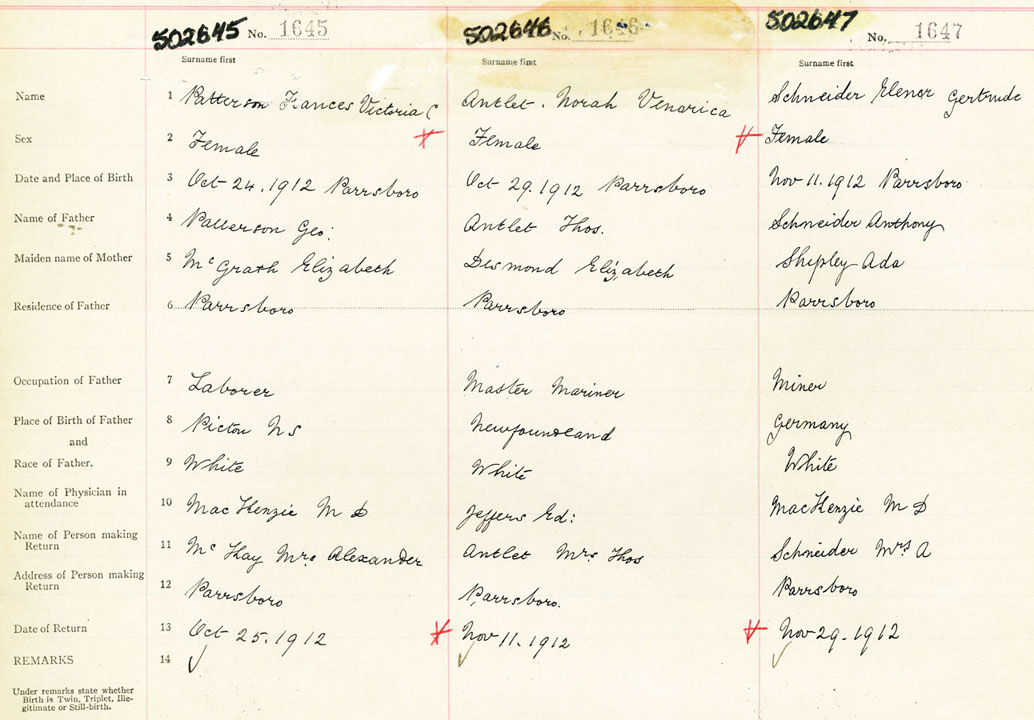 502645 No. 1645 502646 No. 1646 502647 No. 1647
Surname first Surname first Surname first
Name 1 Patterson Frances Victoria C Antlet. Norah Venarica Schneider Elenor Gertrude
Sex 2 Female Female Female
Date and Place of Birth 3 Oct 24.1912 Parrsboro Oct 29.1912 Parrsboro Nov 11.1912 Parrsboro
Name of Father 4 Patterson Geo. Antlet Thos. Schneider Anthony
Maiden name of Mother 5 McGrath Elizabeth Desmond Elizabeth Shipley Ada
Residence of Father 6 Parrsboro Parrsboro Parrsboro
Occupation of Father 7 Laborer Master Mariner Miner
Place of Birth of Father 8 Pictou NS Newfoundland Germany
and
Race of Father. 9 White White White
Name of Physician in
attendance 10 MacKenzie M D Jeffers Ed: MacKenzie M D
Name of Person making
Return 11 McKay Mrs Alexander Antlet Mrs Thos Schneider Mrs A
Address of Person making
Return 12 Parrsboro Parrsboro. Parrsboro
Date of Return 13 Oct 25.1912 Nov 11.1912 Nov 29.1912
REMARKS 14
Under remarks state whether
Birth is Twin, Triplet, Ille-
gitimate or Still-birth.